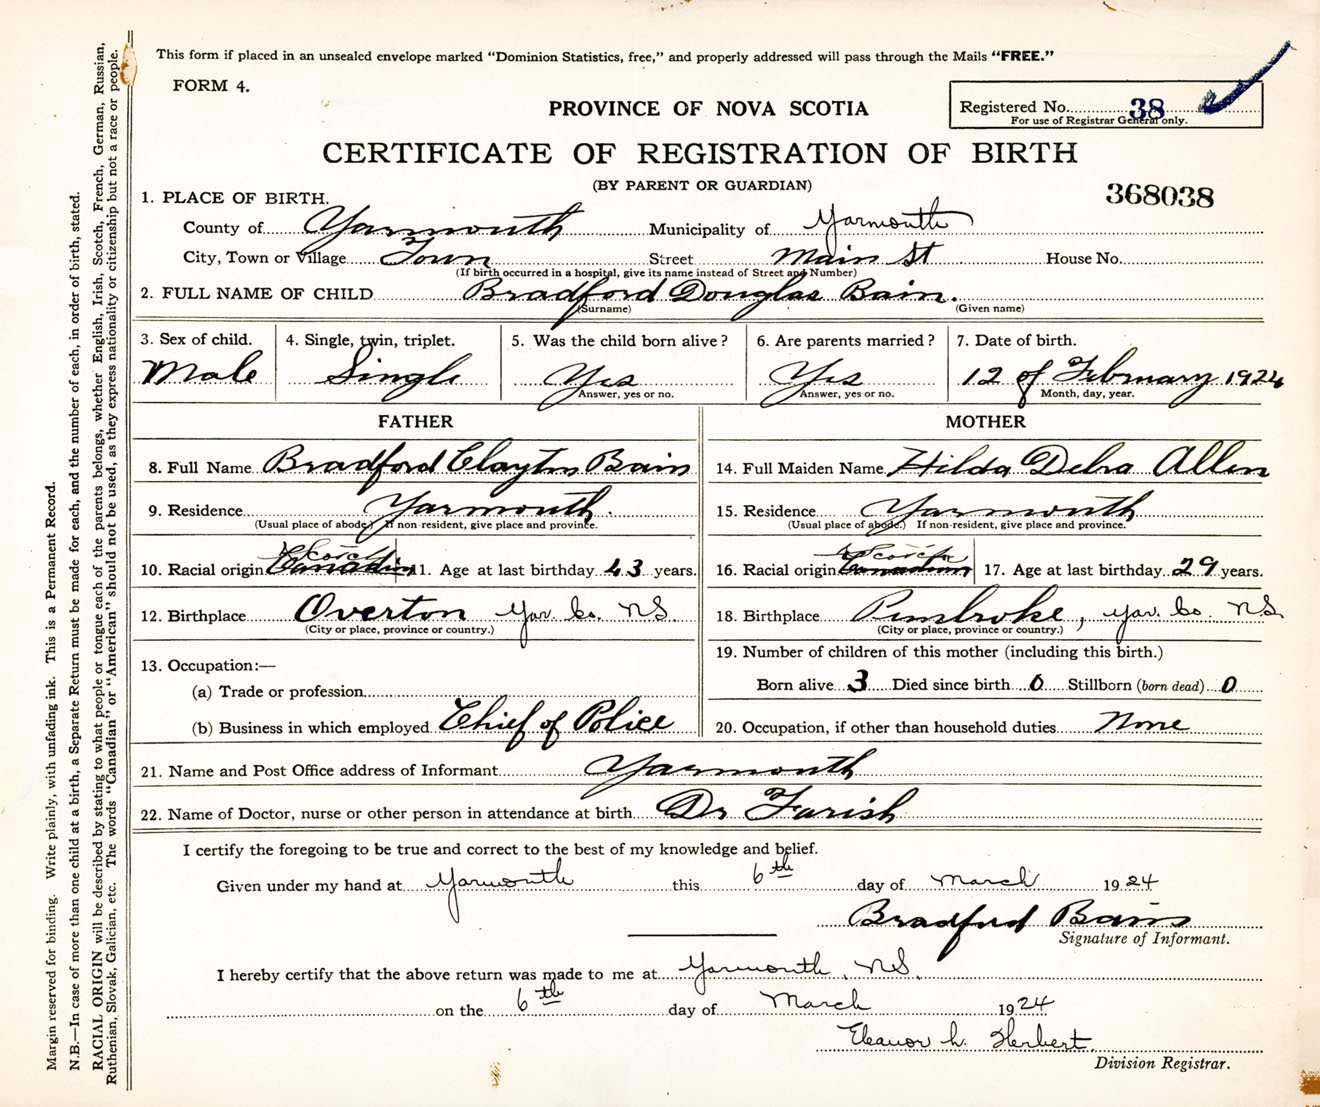 This form if placed in an unsealed envelope marked "Dominion Statistics, free," and properly addressed will pass through the Mails "FREE."
FORM 4.
PROVINCE OF NOVA SCOTIA
Registered No. 38
For use of Registrar General only.
CERTIFICATE OF REGISTRATION OF BIRTH
(BY PARENT OR GUARDIAN)
368038
1. PLACE OF BIRTH.
County of Yarmouth Municipality of Yarmouth
City, Town or Village Town Street Main St House No.
(If birth occurred in a hospital, give its name instead of Street and Number)
2. FULL NAME OF CHILD Bradford Douglas Bain.
(Surname) (Given name)
3. Sex of child. 4. Single, twin, triplet. 5. Was the child born alive? 6. Are parents married? 7. Date of birth.
Male Single Yes Yes 12 of February 1924
Answer, yes or no. Answer, yes or no. Month, day, year.
FATHER MOTHER
8. Full Name Bradford Clayton Bain 14. Full Maiden Name Hilda Debra Allen
9. Residence Yarmouth. 15. Residence Yarmouth
(Usual place of abode.) If non-resident, give place and province. (Usual place of abode.) If non-resident, give place and province.
Scotch Scotch
10. Racial origin Canadian 11. Age at last birthday 43 years. 16. Racial origin Canadian 17. Age at last birthday 29 years.
12. Birthplace Overton Yar. Co. NS. 18. Birthplace Pembroke, Yar. Co. NS
(City or place, province or country.) (City or place, province or country.)
13. Occupation:— 19. Number of children of this mother (including this birth.)
(a) Trade or profession Born alive 3 Died since birth 0 Stillborn (born dead) 0
(b) Business in which employed Chief of Police 20. Occupation, if other than household duties None
21. Name and Post Office address of Informant Yarmouth
22. Name of Doctor, nurse or other person in attendance at birth Dr Farish
I certify the foregoing to be true and correct to the best of my knowledge and belief.
Given under my hand at Yarmouth this 6th day of March 1924
Bradford Bain
Signature of Informant.
I hereby certify that the above return was made to me at Yarmouth, NS.
on the 6th day of March 1924
Eleanor L. Herbert
Division Registrar.
Margin reserved for binding. Write plainly, with unfading ink. This is a Permanent Record.
N.B.—In case of more than one child at a birth, a Separate Return must be made for each, and the number of each, in order of birth, stated.
RACIAL ORIGIN will be described by stating to what people or tongue each of the parents belongs, whether English, Irish, Scotch, French, German, Russian,
Ruthenian, Slovak, Galician, etc. The words "Canadian" or "American" should not be used, as they express nationality or citizenship but not a race or people.